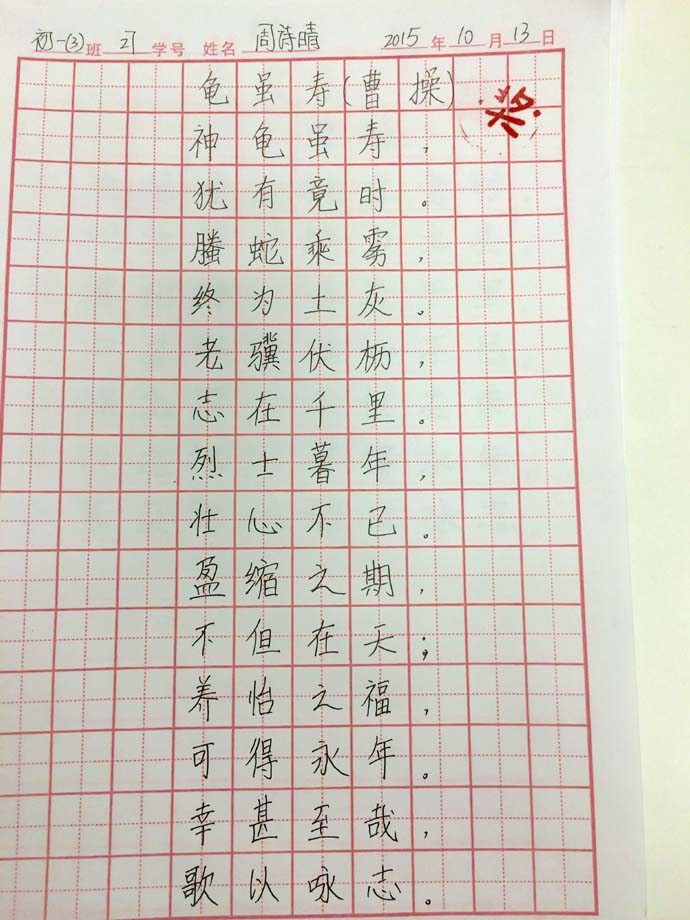 初一(3)班 21 学号 姓名 周诗晴 2015年10月13日
龟虽寿(曹操)
奖
神龟虽寿，
犹有竟时。
螣蛇乘雾，
终为土灰。
老骥伏枥，
志在千里。
烈士暮年，
壮心不已。
盈缩之期，
不但在天；
养怡之福，
可得永年。
幸甚至哉，
歌以咏志。